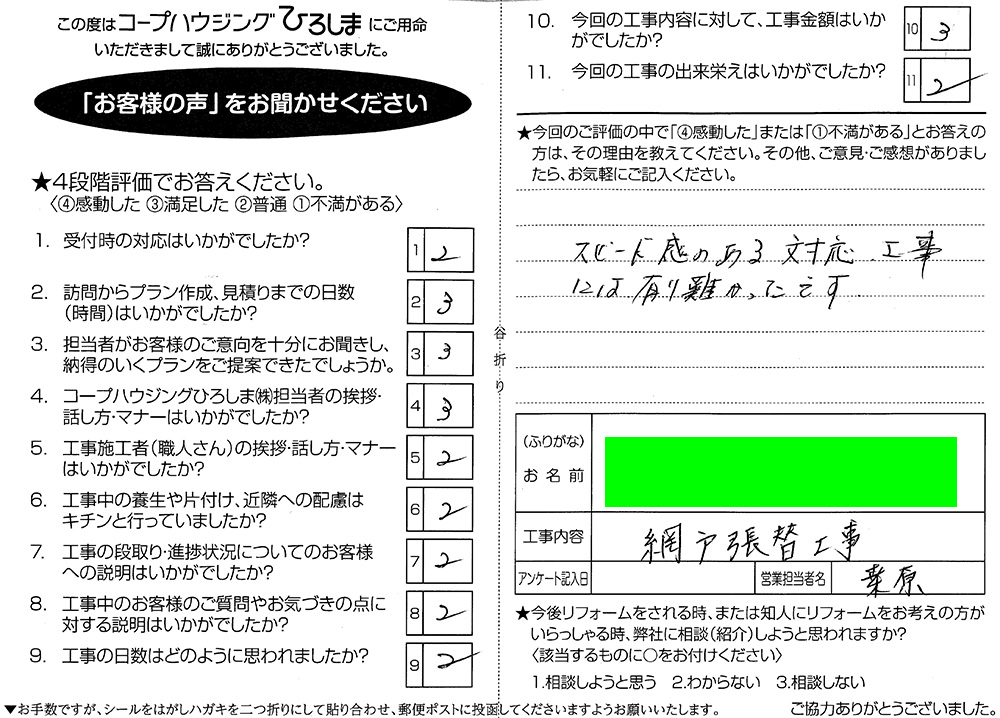 この度はコープハウジングひろしまにご用命
いただきまして誠にありがとうございました。
「お客様の声」をお聞かせください
★4段階評価でお答えください。
〈④感動した ③満足した ②普通 ①不満がある〉
1. 受付時の対応はいかがでしたか?
1 2
2. 訪問からプラン作成、見積りまでの日数
(時間)はいかがでしたか?
2 3
3. 担当者がお客様のご意向を十分にお聞きし、
納得のいくプランをご提案できたでしょうか。
3 3
4. コープハウジングひろしま㈱担当者の挨拶・
話し方・マナーはいかがでしたか?
4 3
5. 工事施工者(職人さん)の挨拶・話し方・マナー
はいかがでしたか?
5 2
6. 工事中の養生や片付け、近隣への配慮は
キチンと行っていましたか?
6 2
7. 工事の段取り・進捗状況についてのお客様
への説明はいかがでしたか?
7 2
8. 工事中のお客様のご質問やお気づきの点に
対する説明はいかがでしたか?
8 2
9. 工事の日数はどのように思われましたか?
9 2
▼お手数ですが、シールをはがしハガキを二つ折りにして貼り合わせ、郵便ポストに投函してくださいますようお願いいたします。
谷折り
10. 今回の工事内容に対して、工事金額はいか
がでしたか?
10 3
11. 今回の工事の出来栄えはいかがでしたか?
11 2
★今回のご評価の中で「④感動した」または「①不満がある」とお答えの
方は、その理由を教えてください。その他、ご意見・ご感想がありまし
たら、お気軽にご記入ください。
スピード感のある対応、工事
には有り難かったです
(ふりがな)
お名前
工事内容 網戸張替工事
アンケート記入日 営業担当者名 葉原
★今後リフォームをされる時、または知人にリフォームをお考えの方が
いらっしゃる時、弊社に相談(紹介)しようと思われますか?
〈該当するものに○をお付けください〉
1.相談しようと思う 2.わからない 3.相談しない
ご協力ありがとうございました。